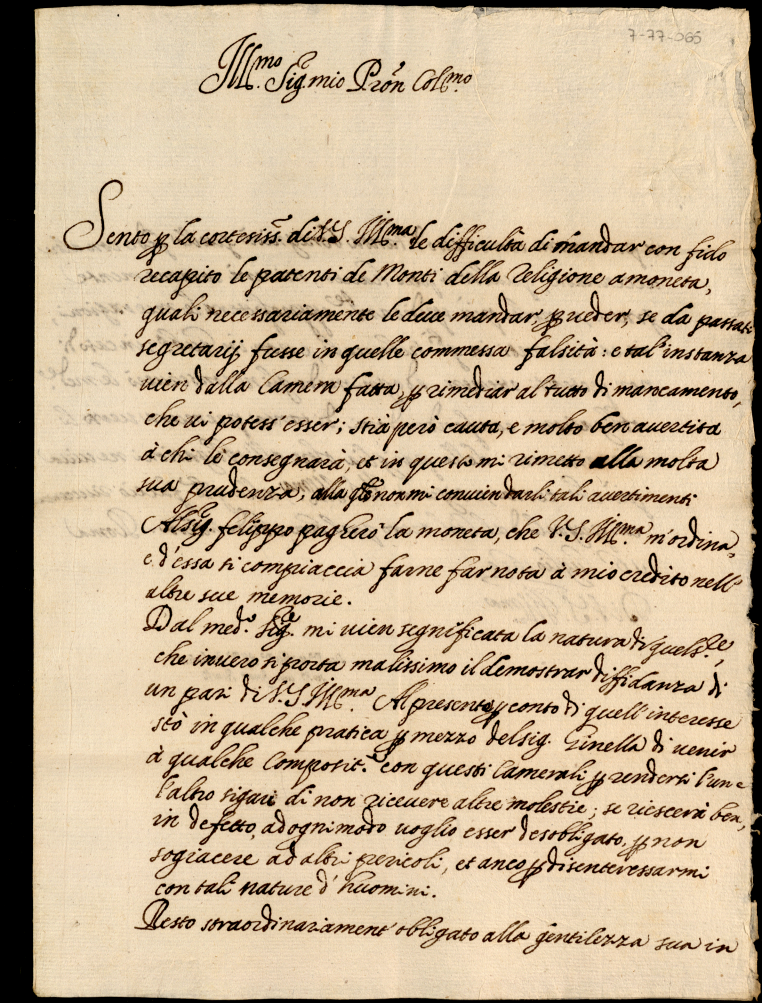 7-77-065
Ill.mo Sig.r mio Pron Col.mo
Sento p la cortesiss. di V.S. Ill.ma le difficultà di mandar con fido
recapito le patenti de Monti della Religione a moneta,
quali necessariamente le deve mandar, p veder, se da passati
segretarij fusse in quelle commessa falsità: e tal'instanza
vien dalla Camera fatta, p rimediar al tutto di mancamento,
che vi potess'esser; stia però cauta, e molto ben avertita
à chi le consegnarà, et in questo mi rimetto alla molta
sua prudenza, alla qle non mi convien darli tali avertimenti
Al Sig.r Felippo pagherò la moneta, che V.S. Ill.ma m'ordina,
e d'essa si compiaccia farne far nota à mio credito nell'
altre sue memorie.
Dal med.o Sig.re mi vien segnificata la natura di quel
che invero si porta malissimo il demostrar diffidanza di
un pari di V.S. Ill.ma. Al presente p conto di quell'interesse
stò in qualche pratica p mezzo del sig. Ginella di venir
à qualche Composit.e con questi Camerali p rendersi l'un e
l'altro sicuri di non ricevere altre molestie; se riescerà ben,
in defetto, ad ogni modo voglio esser desobligato, p non
sogiacere ad altri pericoli, et anco p disenteressarmi
con tali nature d'huomini.
Resto straordinariament' obligato alla gentilezza sua in